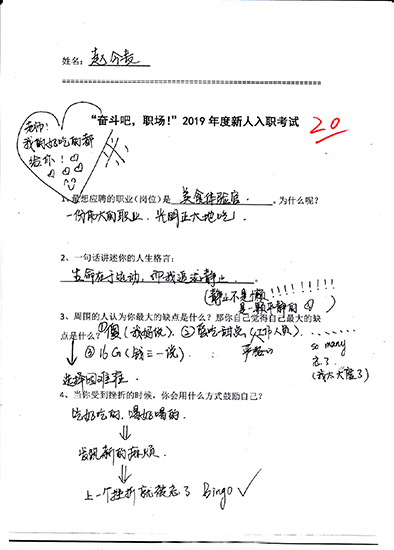 姓名：赵介贵
“奋斗吧，职场！”2019年度新人入职考试
20
老师！
我的好吃的都
给你！
1、最想应聘的职业（岗位）是 美食体验官 。为什么呢？
一份伟大的职业，光明正大地吃！
2、一句话讲述你的人生格言：
生命在于运动，而我追求静止 。
（静止不是懒！！！！！！！！
是一颗平静的
3、周围的人认为你最大的缺点是什么？那你自己觉得自己最大的缺
点是什么？①傻（我好傻）②爱吃甜点（工作人员）
③
so many
忘了
（我太大脸了）
选择困难症
4、当你受到挫折的时候，你会用什么方式鼓励自己？
吃好吃的，喝好喝的
发现新的麻烦
上一个挫折就被忘了 Bingo ✓